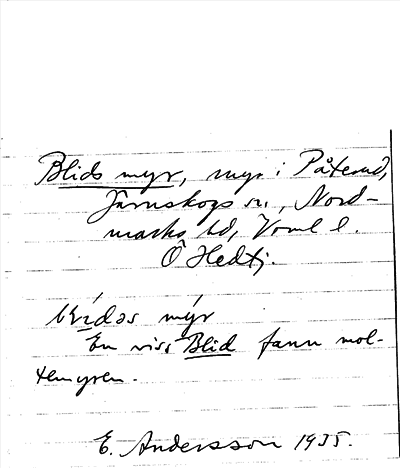 Blids myr, myr i Påterud,
Järnskogs sn, Nord-
marks hd, Vrml l.
Ö Hedtj.
blidəs mýr
En viss Blid fann mol-
temyren.
E. Andersson 1935.